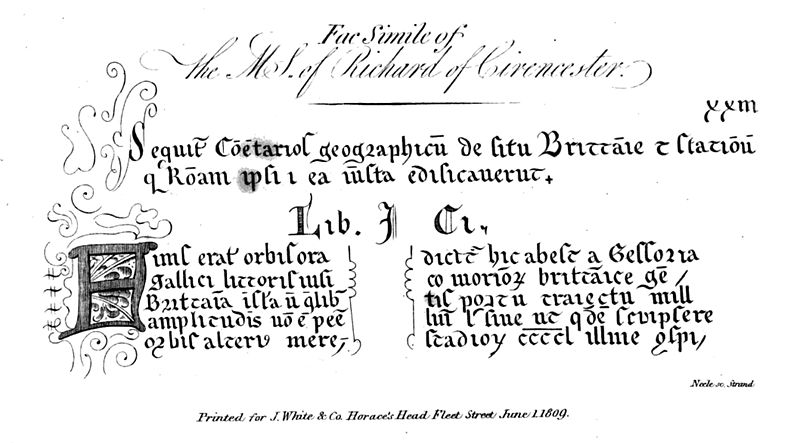 Fac Simile of
the MS. of Richard of Cirencester.
xxııı
Sequit̄ Cōētariol geographicū de situ Brittāie τ statiōū
q Rōani ipsi i ea īusta edificauerut.
Lib. I Ci.
Finis erat orbis ora
gallici littoris nisi
Brittaīa ista
amplitudis uō ē peē
orbis alteru mere,
dictt̄ hic abest a Gessoria
co morioꝝ brittāice gē/
tis portu traiectu mill
siue ut qdē scripsere
stadioꝝ ccccl
Neele sc. Strand
Printed for J. White & Co. Horace's Head Fleet Street June 1. 1809.